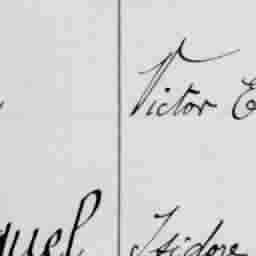 Victor E
quel Isidore